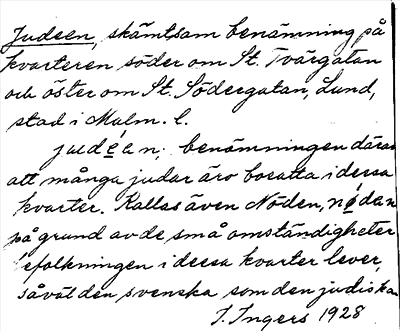 Judeen, skämtsam benämning på
kvarteren söder om St. Tvärgatan
och öster om St. Södergatan, Lund,
stad i Malm. l.
judéan; benämningen däraf
att många judar äro bosatta i dessa
kvarter. Kallas även Nöden, nødan
på grund av de små omständigheter
efolkningen i dessa kvarter lever,
såväl den svenska som den judiska
I. Ingers 1928